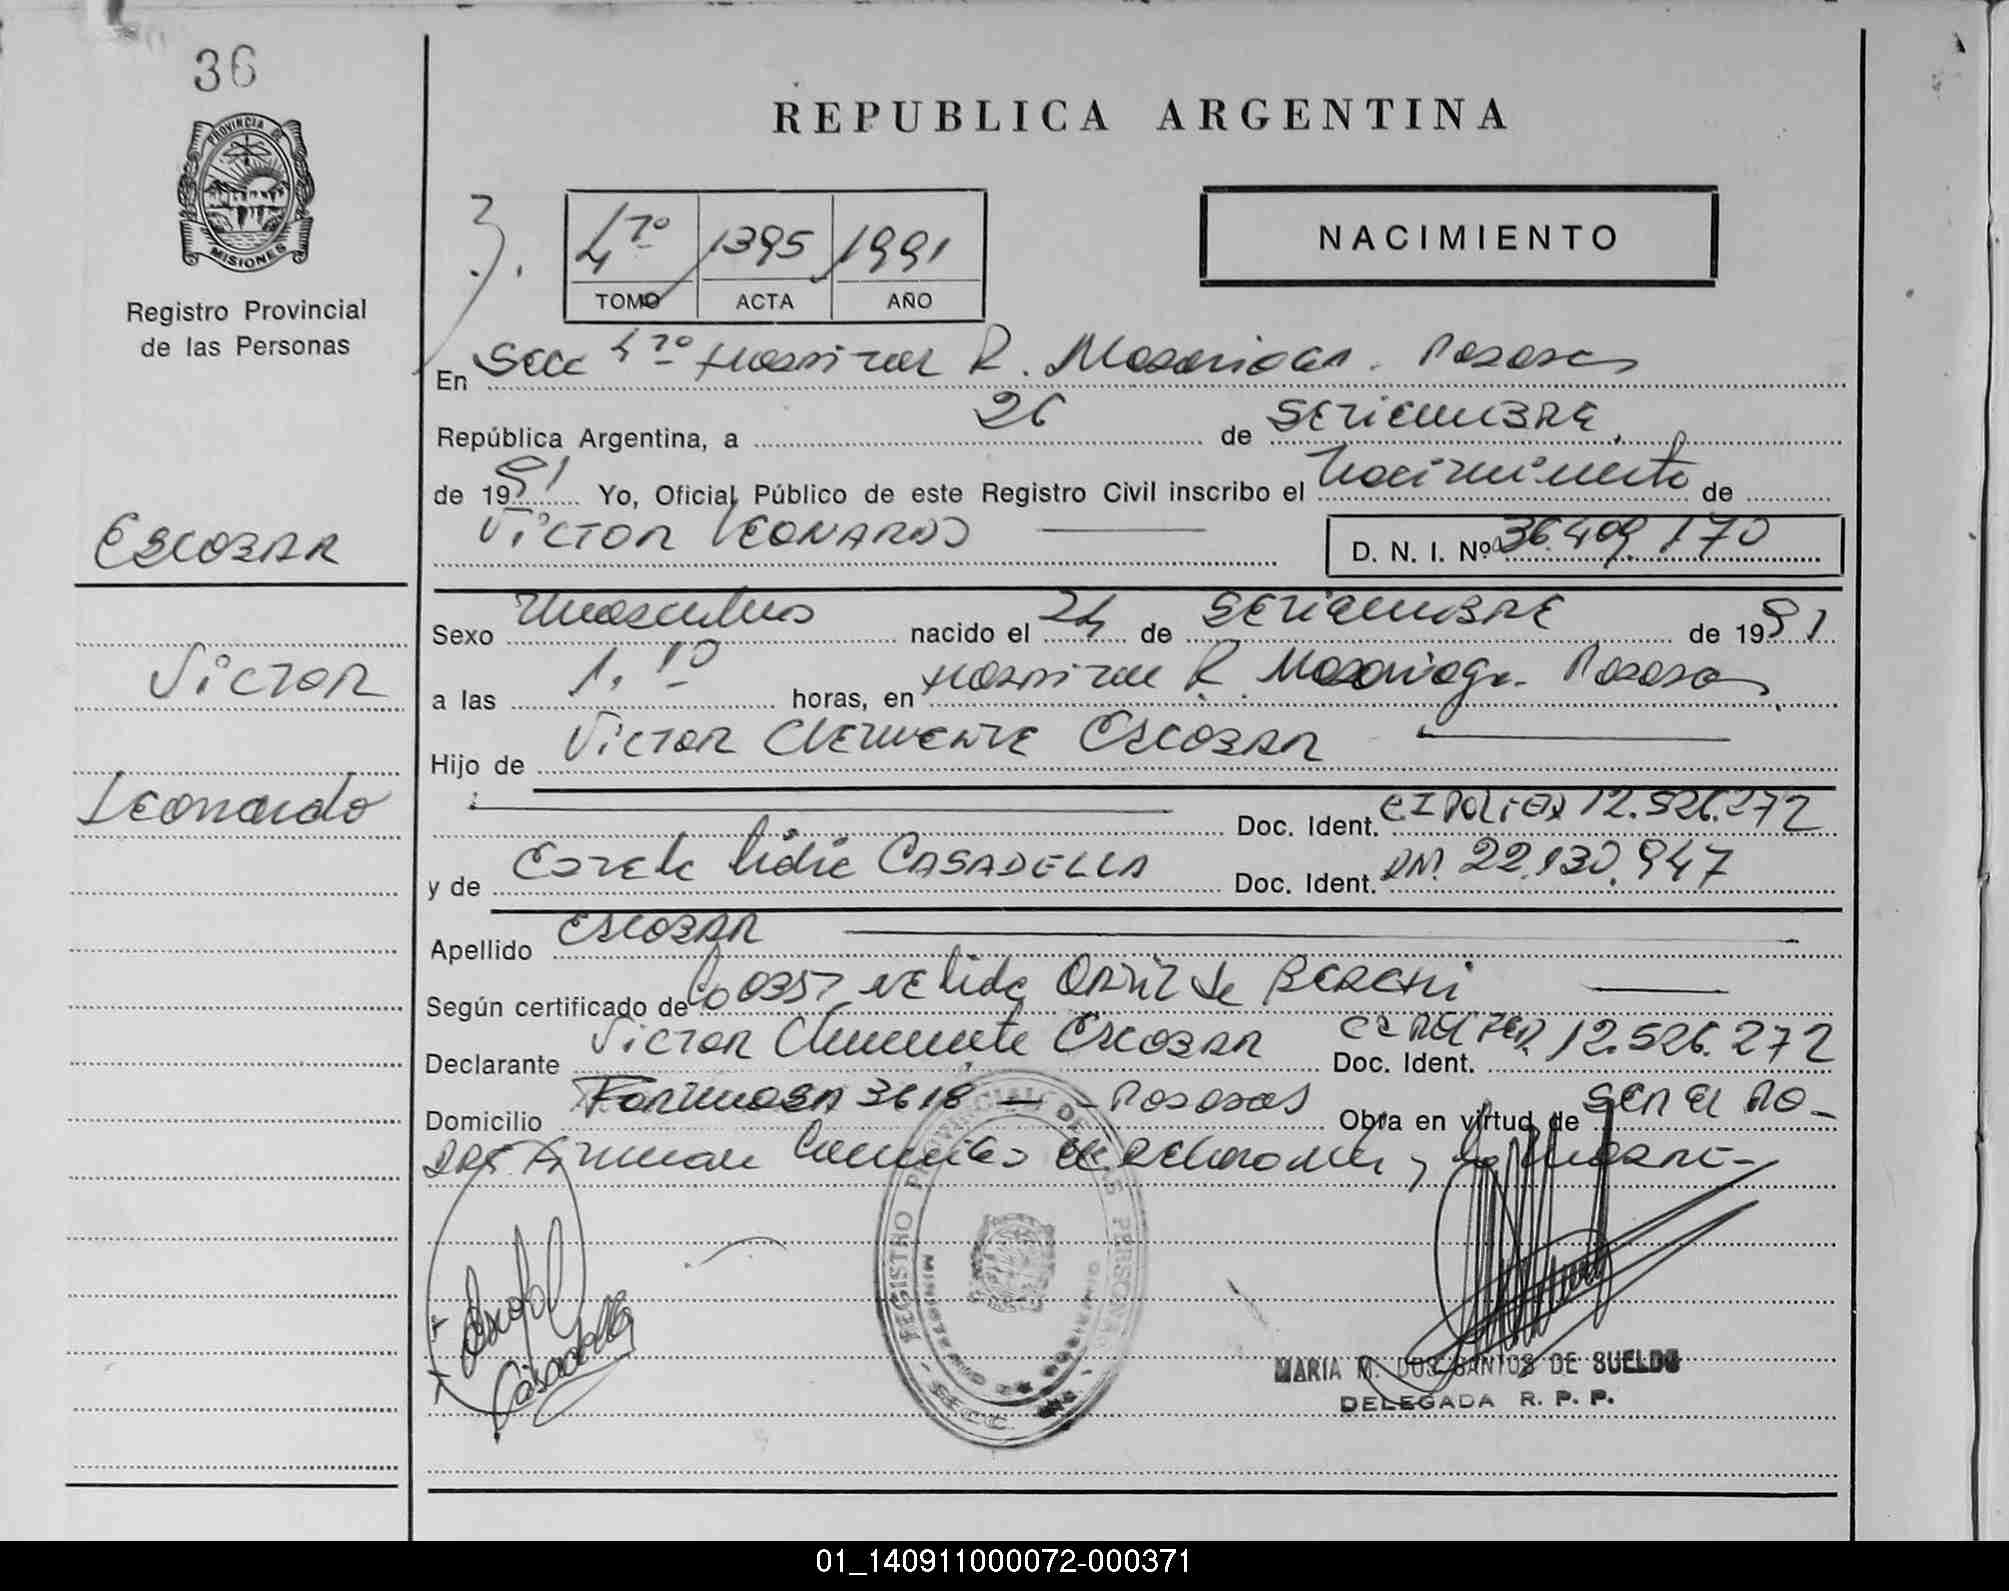 36
PROVINCIA DE
MISIONES
Registro Provincial
de las Personas
ESCOBAR
Victor
Leonardo
REPUBLICA ARGENTINA
NACIMIENTO
3.
4º 1395 1991
TOMO ACTA AÑO
En Secc 4º Hospital R. Madariaga. Posadas
República Argentina, a 26 de SETIEMBRE
de 1991 Yo, Oficial Público de este Registro Civil inscribo el Nacimiento de
VICTOR LEONARDO D. N. I. Nº 36.409.170
Sexo Masculino nacido el 24 de SETIEMBRE de 1991
a las 1.10 horas, en Hospital R. Madariaga. Posadas
Hijo de Victor CLEMENTE ESCOBAR
Doc. Ident. CI 12.526.272
y de Lidia CASADELLA Doc. Ident. DNI 22.130.947
Apellido ESCOBAR
Según certificado de 0357 Nelida de
Declarante Victor Clemente ESCOBAR Doc. Ident. 12.526.272
Domicilio FORMOSA 3618 — Posadas Obra en virtud de SER EL PA-
DRE Firman
Casadella
REGISTRO PROVINCIAL DE LAS PERSONAS
MARIA M. DOS SANTOS DE SUELDO
DELEGADA R. P. P.
01_140911000072-000371